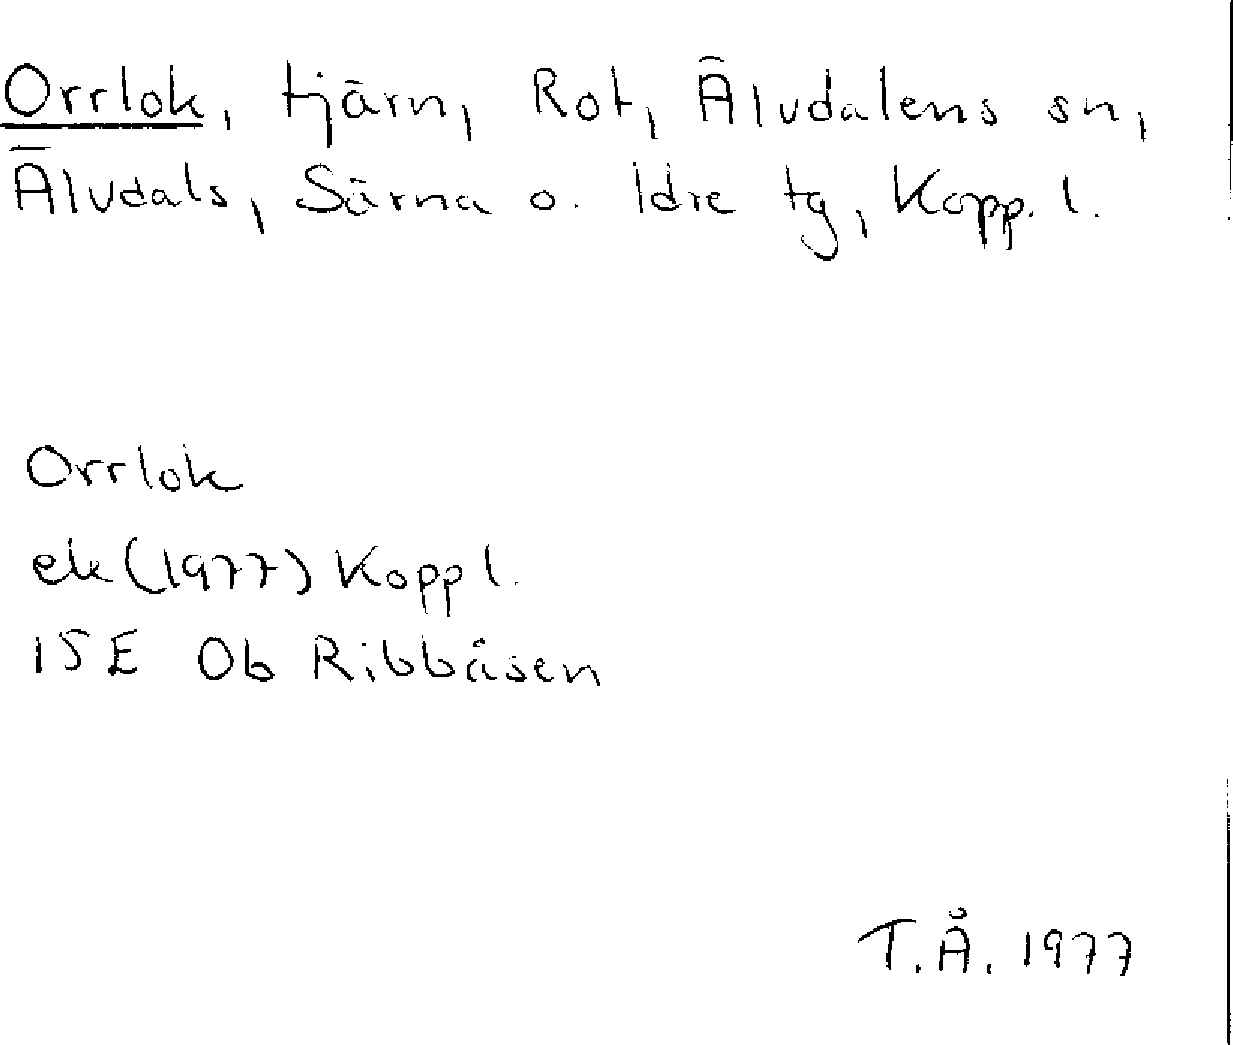 Orrlok, tjärn, Rot, Älvdalens sn,
Älvdals, Särna o. Idre tg, Kopp. l.
Orrlok
ek (1977) Kopp l.
15E Ob Ribbåsen
T.Å. 1977